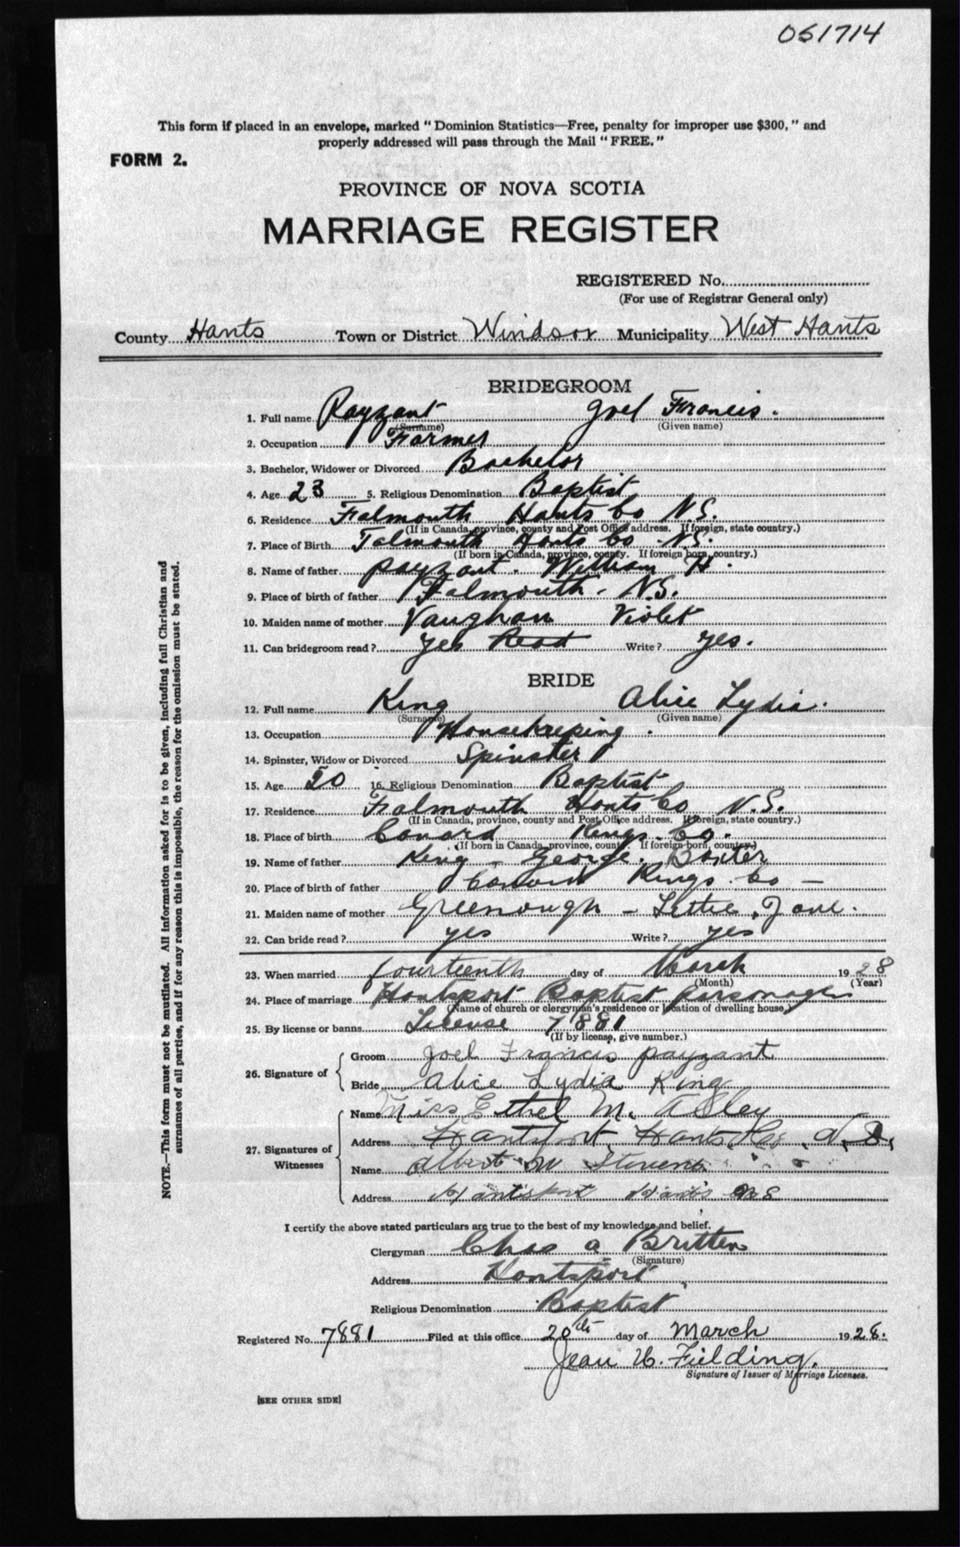 051714
This form if placed in an envelope, marked "Dominion Statistics—Free, penalty for improper use $300," and
properly addressed will pass through the Mail "FREE."
FORM 2.
PROVINCE OF NOVA SCOTIA
MARRIAGE REGISTER
REGISTERED No.
(For use of Registrar General only)
County Hants Town or District Windsor Municipality West Hants
BRIDEGROOM
1. Full name Payzant Joel Francis.
(Surname) (Given name)
2. Occupation Farmer
3. Bachelor, Widower or Divorced Bachelor
4. Age 23 5. Religious Denomination Baptist
6. Residence Falmouth Hants Co N.S.
(If in Canada, province, county and Post Office address. If foreign, state country.)
7. Place of Birth Falmouth Hants Co N.S.
(If born in Canada, province, county. If foreign born, country.)
8. Name of father Payzant. William H.
9. Place of birth of father Falmouth - N.S.
10. Maiden name of mother Vaughan Violet
11. Can bridegroom read? Yes Read Write? Yes.
BRIDE
12. Full name King Alice Lydia.
(Surname) (Given name)
13. Occupation Housekeeping.
14. Spinster, Widow or Divorced Spinster
15. Age 20 16. Religious Denomination Baptist
17. Residence Falmouth Hants Co N.S.
(If in Canada, province, county and Post Office address. If foreign, state country.)
18. Place of birth Canard Kings Co.
(If born in Canada, province, county. If foreign born, country)
19. Name of father King - George. Baxter
20. Place of birth of father Canard Kings Co —
21. Maiden name of mother Greenough - Lettie Jane.
22. Can bride read? yes Write? yes
23. When married fourteenth day of March 1928
(Month) (Year)
24. Place of marriage Hantsport Baptist parsonage
(Name of church or clergyman's residence or location of dwelling house)
25. By license or banns License 7881
(If by license, give number.)
26. Signature of Groom Joel Francis Payzant
Bride Alice Lydia King
27. Signatures of Witnesses Name Miss Ethel M.
Address Hantsport, Hants Co., N.S.
Name Albert W Stevens
Address Hantsport Hants N S
I certify the above stated particulars are true to the best of my knowledge and belief.
Clergyman Chas a Britten
(Signature)
Address Hantsport
Religious Denomination Baptist
Registered No. 7881 Filed at this office 20th day of March 1928.
Jean W. Fielding.
Signature of Issuer of Marriage Licenses.
[SEE OTHER SIDE]
NOTE.—This form must not be mutilated. All information asked for is to be given, including full Christian and
surnames of all parties, and if for any reason this is impossible, the reason for the omission must be stated.